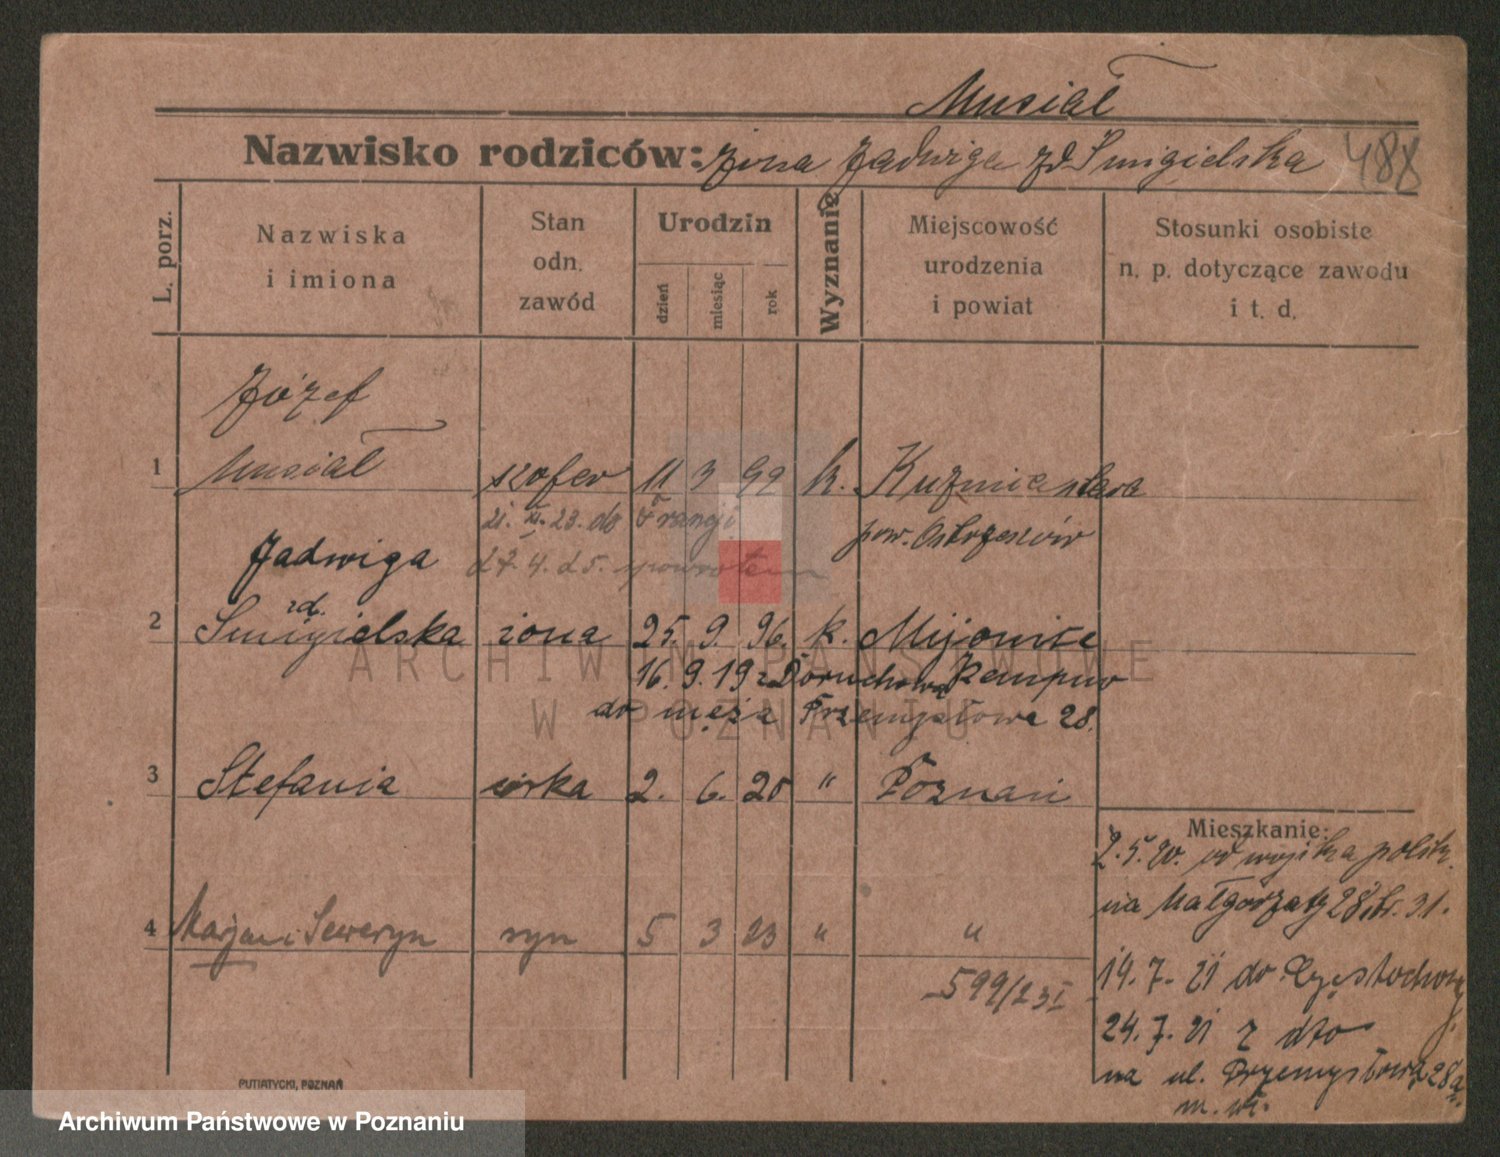 Musiał
Nazwisko rodziców: żona Jadwiga zd Smigielska 488
L. porz.
Nazwiska i imiona
Stan odn. zawód
Urodzin
dzień
miesiąc
rok
Wyznanie
Miejscowość urodzenia i powiat
Stosunki osobiste n. p. dotyczące zawodu i t. d.
Józef
1 Musiał szofer 11 3 92 k. Kuźnica stara
21. XI. 23. do Francji pow. Ostrzeszów
Jadwiga 27. 4. 25. spowrotem
zd.
2 Smigielska żona 25. 9. 96. k. Mijomice
16. 9. 19 z Doruchowa Kempno
do męża Przemysłowa 28.
3 Stefania córka 2. 6. 20 " Poznań
Mieszkanie:
2. 5. 20. od wojska polsk.
na Małgorzaty 28 31.
4 Marjan i Seweryn syn 5 3 23 " "
599/23 I
19. 7. 21 do Częstochowy
24. 7. 21 z dto
na ul. Przemysłowa 28a
PUTIATYCKI, POZNAŃ
ARCHIWUM PAŃSTWOWE
W POZNANIU
Archiwum Państwowe w Poznaniu